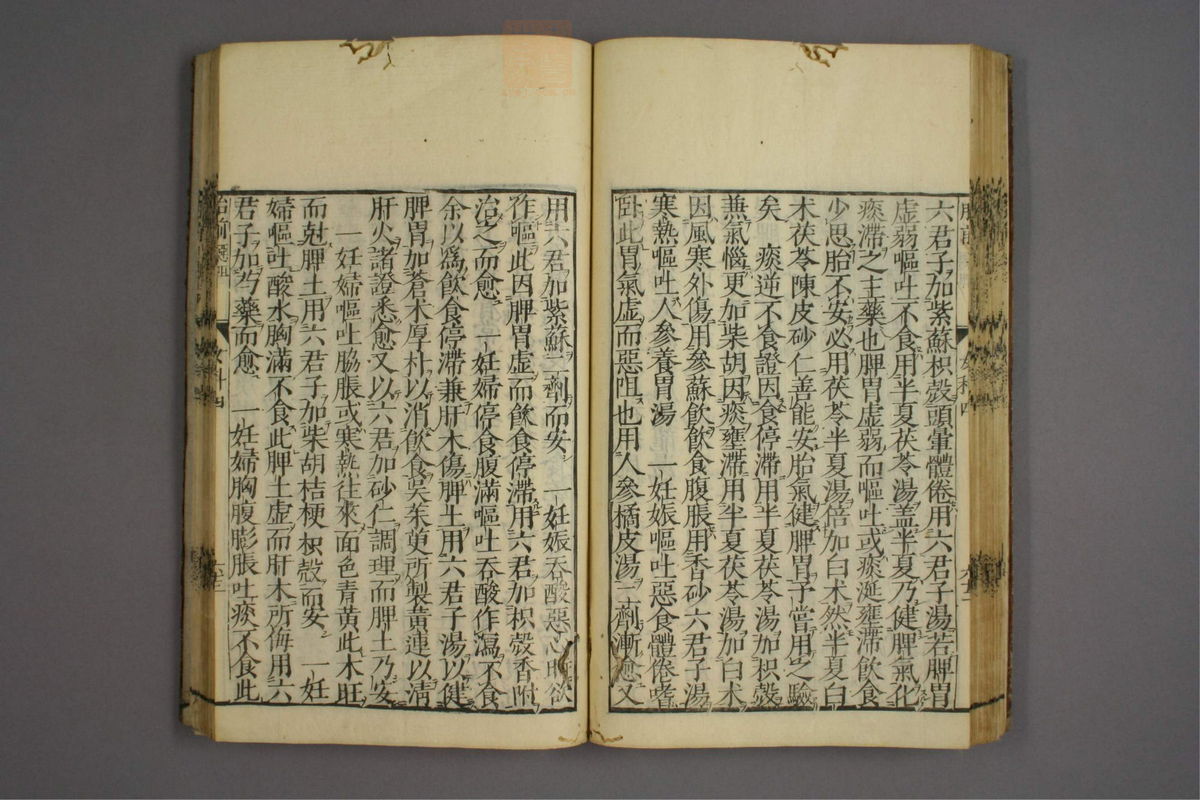 六君子加紫蘇枳殼頭暈體倦用六君子湯若脾胃
虛弱嘔吐不食用半夏茯苓湯盖半夏乃健脾氣化
痰滯之主藥也脾胃虛弱而嘔吐或痰涎壅滯飲食
少思胎不安必用茯苓半夏湯倍加白术然半夏白
术茯苓陳皮砂仁善能安胎氣健脾胃予嘗用之驗
矣　痰逆不食證因食停滯用半夏茯苓湯加枳殼
兼氣惱更加柴胡因痰壅滯用半夏茯苓湯加白术
因風寒外傷用參蘇飲飲食腹脹用香砂六君子湯
寒熱嘔吐人參養胃湯　一妊娠嘔吐惡食體倦嗜
臥此胃氣虛而惡阻也用人參橘皮湯二劑漸愈又
用六君加紫蘇二劑而安　一妊娠吞酸惡心欲
作嘔此因脾胃虛而飲食停滯用六君加枳殼香附
治之而愈　一妊婦停食腹滿嘔吐吞酸作瀉不食
余以爲飲食停滯兼肝木傷脾土用六君子湯以健
脾胃加蒼术厚朴以消飲食吳茱萸所製黃連以清
肝火諸證悉愈又以六君加砂仁調理而脾土乃安
一妊婦嘔吐脇脹或寒熱往來面色青黃此木旺
而尅脾土用六君子加柴胡桔梗枳殼而安　一妊
婦嘔吐酸水胸滿不食此脾土虛而肝木所侮用六
君子加芍藥而愈　一妊婦胸腹膨脹吐痰不食此